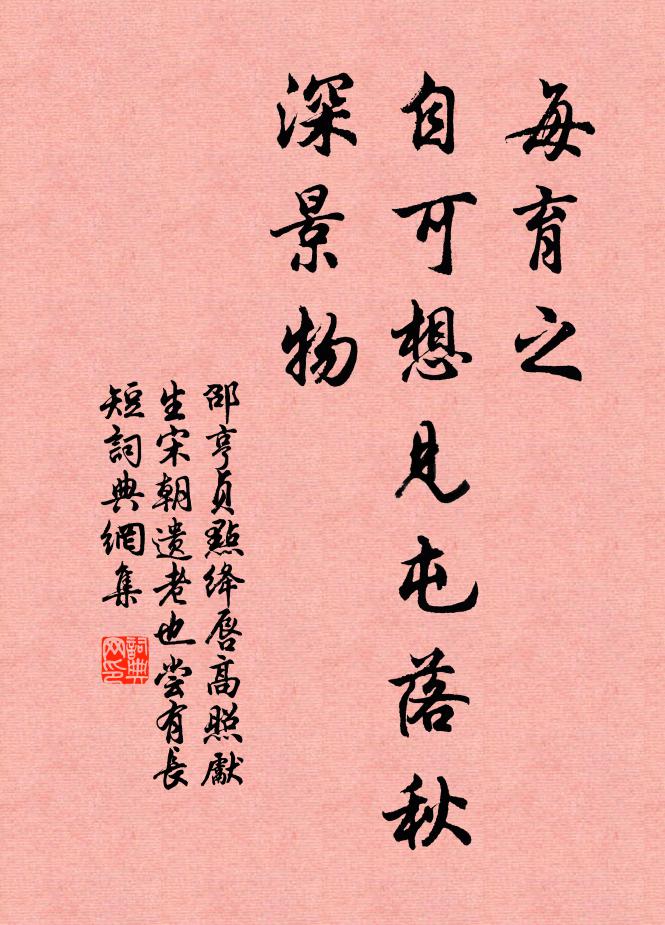 每育之
自可想見屯落秋
深景物
邵亨貞點絳唇高照獻
生宋朝遺老也尝有長
短詞典網集
詞典
网印